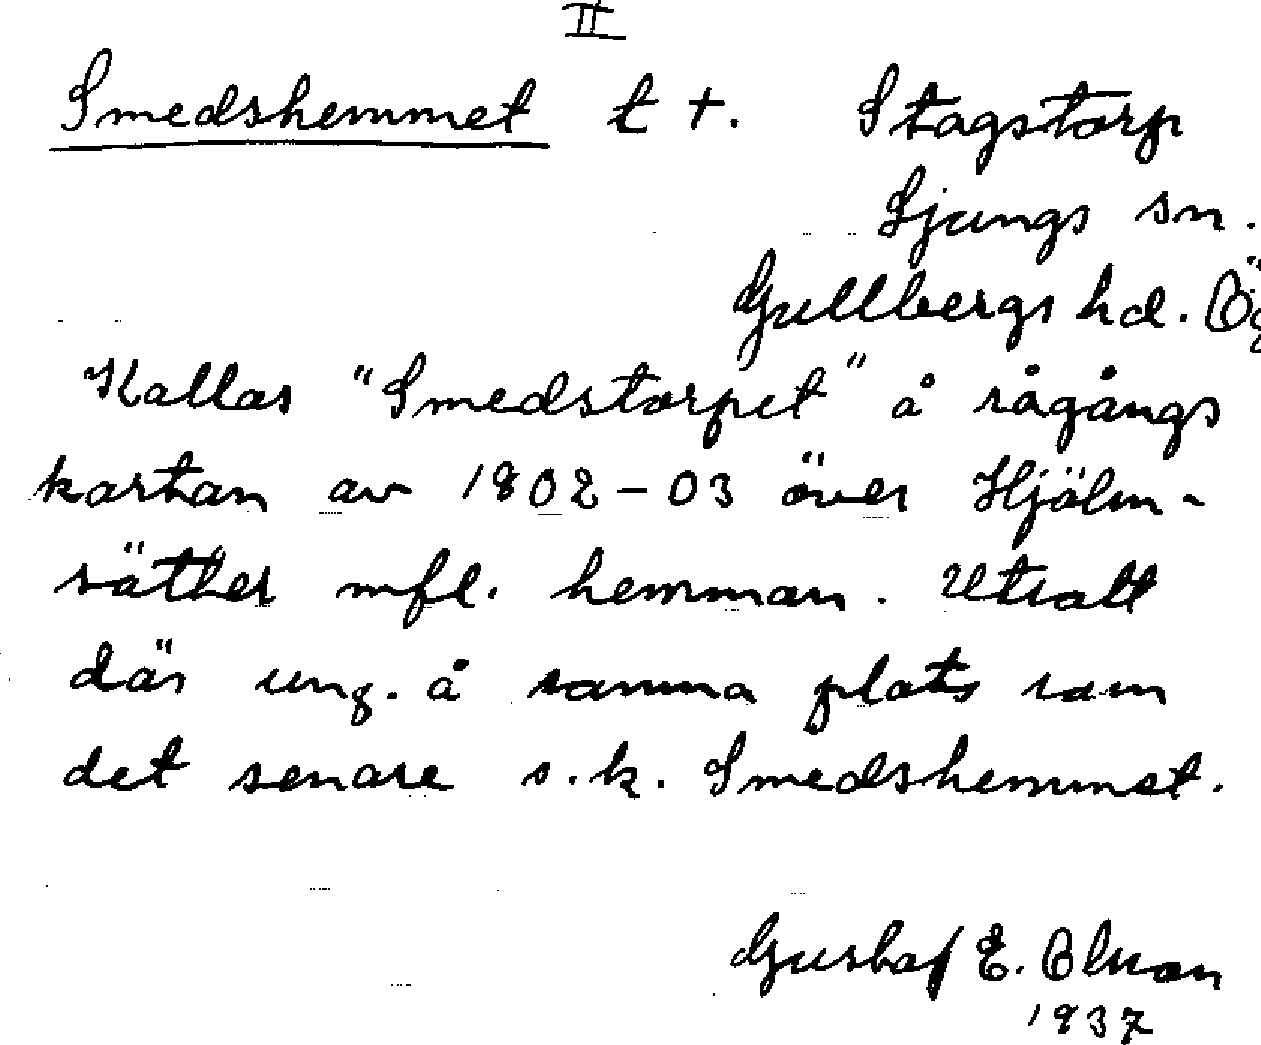 II
Smedshemmet t †. Stagstorp
Ljungs sn.
Gullbergs hd. Ög
Kallas "Smedstorpet" å rågångs
kartan av 1802-03 över Hjälm-
sätter mfl. hemman. Utsatt
där ung. å samma plats som
det senare s.k. Smedshemmet.
Gustaf E. Olsson
1937